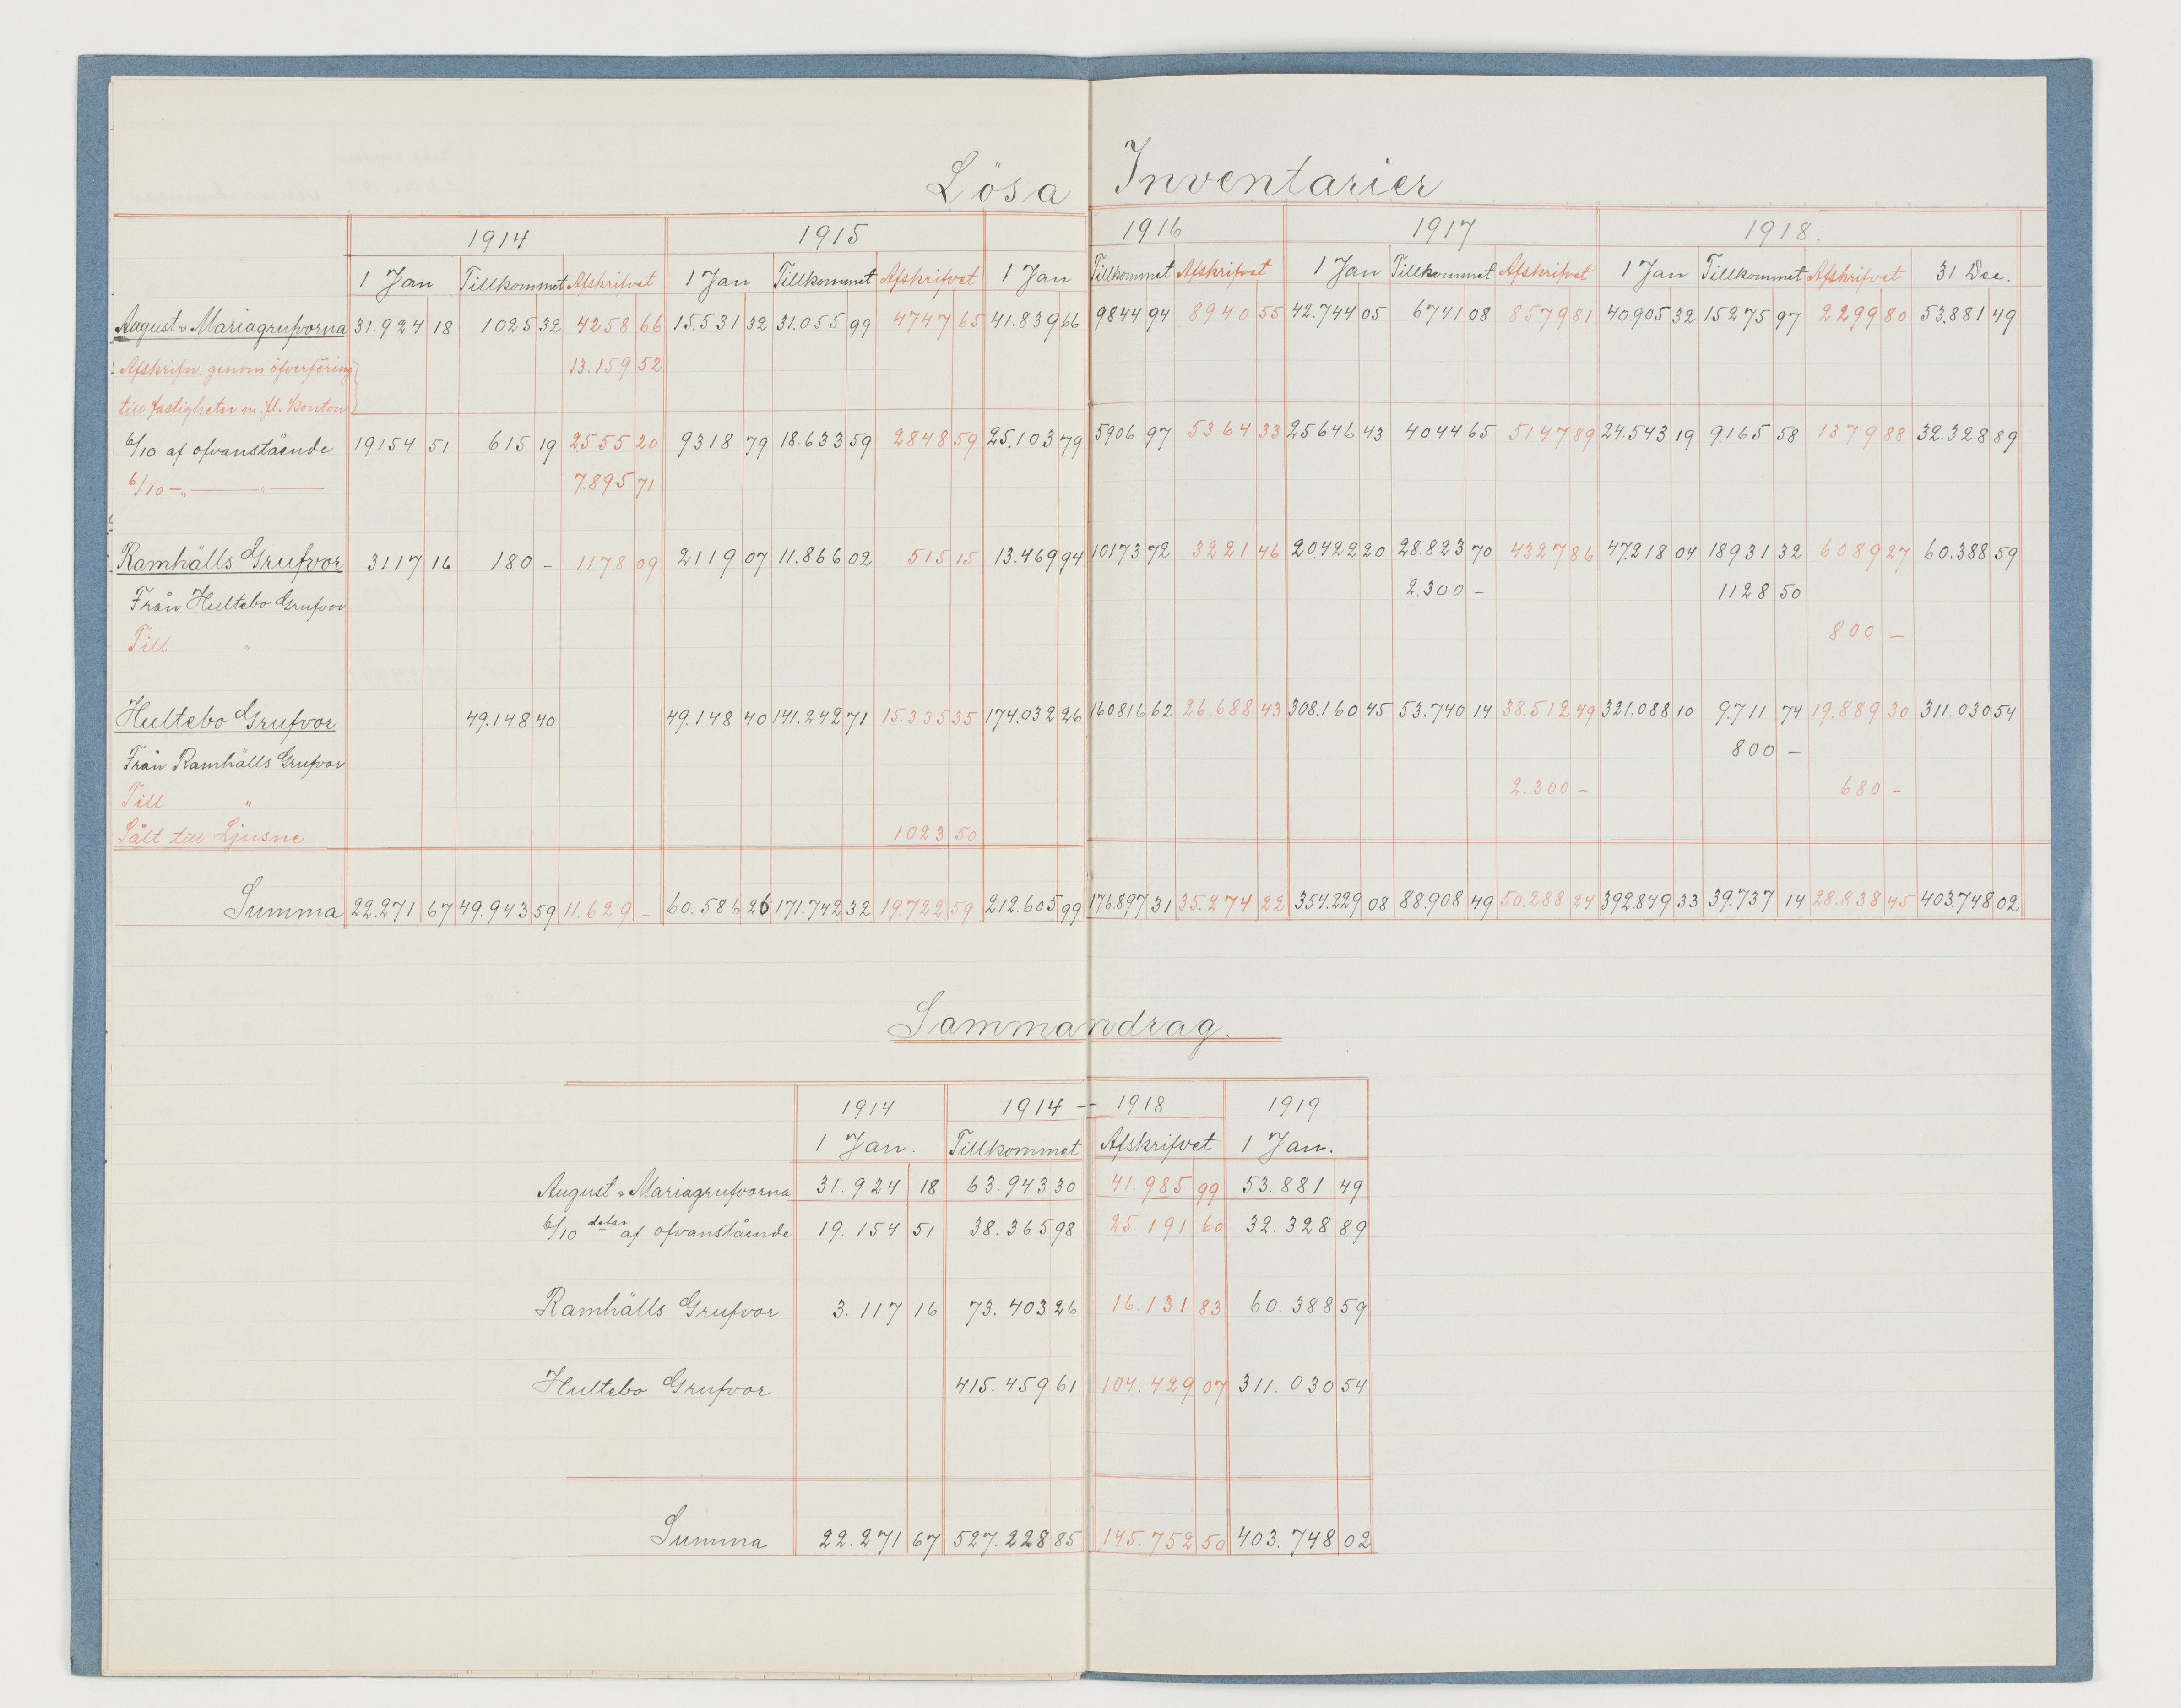 Lösa Inventarier
1914 1915 1916 1917 1918.
1 Jan Tillkommet Afskrifvet 1 Jan Tillkommet Afskrifvet 1 Jan Tillkommet Afskrifvet 1 Jan Tillkommet Afskrifvet 1 Jan Tillkommet Afskrifvet 31 Dec.
August & Mariagrufvorna 31.924 18 1025 32 4258 66 15.531 32 31.055 99 4747 65 41.839 66 9844 94 8940 55 42.744 05 6741 08 8579 81 40.905 32 15275 97 2299 80 53.881 49
Afskrifn. genom öfverföring 13.159 52
till fastigheter m. fl. konton
6/10 af ofvanstående 19154 51 615 19 2555 20 9318 79 18.633 59 2848 59 25.103 79 5906 97 5364 33 25646 43 4044 65 5147 89 24.543 19 9.165 58 1379 88 32.328 89
6/10 -„- „ - 7.895 71
Ramhälls Grufvor 3117 16 180 - 1178 09 2119 07 11.866 02 515 15 13.469 94 10173 72 3221 46 20.422 20 28.823 70 4327 86 47.218 04 18931 32 6089 27 60.388 59
Från Hultebo Grufvor 2.300 - 1128 50
Till „ 800 -
Hultebo Grufvor 49.148 40 49.148 40 141.242 71 15.335 35 174.032 26 160816 62 26.688 43 308.160 45 53.740 14 38.512 49 321.088 10 9.711 74 19.889 30 311.030 54
Från Ramhälls Grufvor 800 -
Till „ 2.300 - 680 -
Sålt till Ljusne 1023 50
Summa 22.271 67 49.943 59 11.629 - 60.586 26 171.742 32 19.722 59 212.605 99 176.897 31 35.274 22 354.229 08 88.908 49 50.288 24 392.849 33 39.737 14 28.838 45 403.748 02
Sammandrag.
1914 1914 - 1918 1919
1 Jan. Tillkommet Afskrifvet 1 Jan.
August & Mariagrufvorna 31.924 18 63.943 30 41.985 99 53.881 49
6/10 delar af ofvanstående 19.154 51 38.365 98 25.191 60 32.328 89
Ramhälls Grufvor 3.117 16 73.403 26 16.131 83 60.388 59
Hultebo Grufvor 415.459 61 104.429 07 311.030 54
Summa 22.271 67 527.228 85 145.752 50 403.748 02